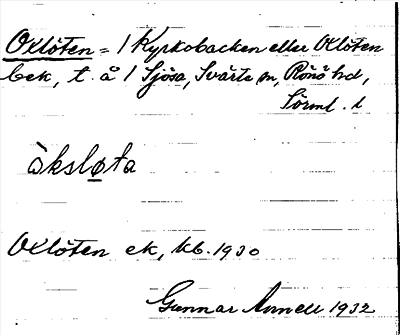 Oxlöten = 1 Kyrkobacken eller Oxlöten
bek, t. å 1 Sjösa, Svärta sn, Rönö hd,
Sörml. l
òkslo̲ta
Oxlöten ek, kb. 1930
Gunnar Annell 1932